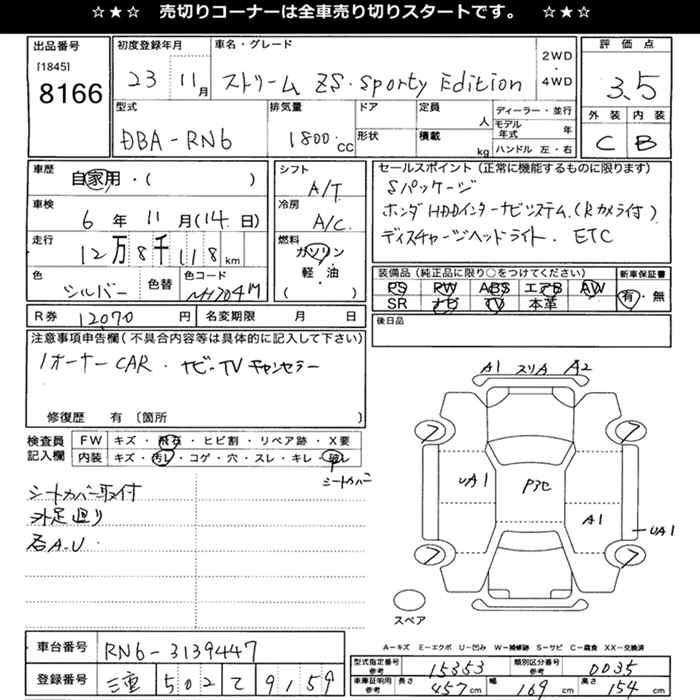 ☆★☆ 売切りコーナーは全車売り切りスタートです。 ☆★☆
出品番号 初度登録年月 車名・グレード 2WD・4WD 評価点
[1845]
8166 23 11月 ストリーム ZS・Sporty Edition 3.5
型式 排気量 ドア 定員 人 ディーラー・並行 外装 内装
DBA-RN6 1800.cc 形状 積載 kg モデル年式 年 C B
ハンドル 左・右
車歴 シフト セールスポイント (正常に機能するものに限ります)
自家用・( ) A/T Sパッケージ
車検 冷房 ホンダHDDインターナビシステム.(Rカメラ付)
6年11月(14日) A/C ディスチャージヘッドライト. ETC
走行 燃料
12万8千118km ガソリン 装備品 (純正品に限り○をつけてください) 新車保証書
色 色替 色コード 軽・油 PS PW ABS エアB AW 有・無
シルバー NH704M ( ) SR ナビ TV 本革
R券 12070円 名変期限 月 日 後日品
注意事項申告欄 (不具合内容等は具体的に記入して下さい)
1オーナーCAR. ナビ-TVキャンセラー
修復歴 有 〔箇所 〕
A1 スリA A2
検査員 FW キズ・飛石・ヒビ割・リペア跡・X要
記入欄 内装 キズ・汚レ・コゲ・穴・スレ・キレ・破レ
シートカバー
シートカバー取付
外足廻り
石A.U
7 7
UA1 P3C
A1 UA1
7 7
スペア
A-キズ E-エクボ U-凹み W-補修跡 S-サビ C-腐食 XX-交換済
車台番号 RN6-3139447
登録番号 三重 502 て 9159
型式指定番号 参考 15353 類別区分番号 参考 0035
車庫証明用 参考 長さ 457cm 幅 169cm 高さ 154cm